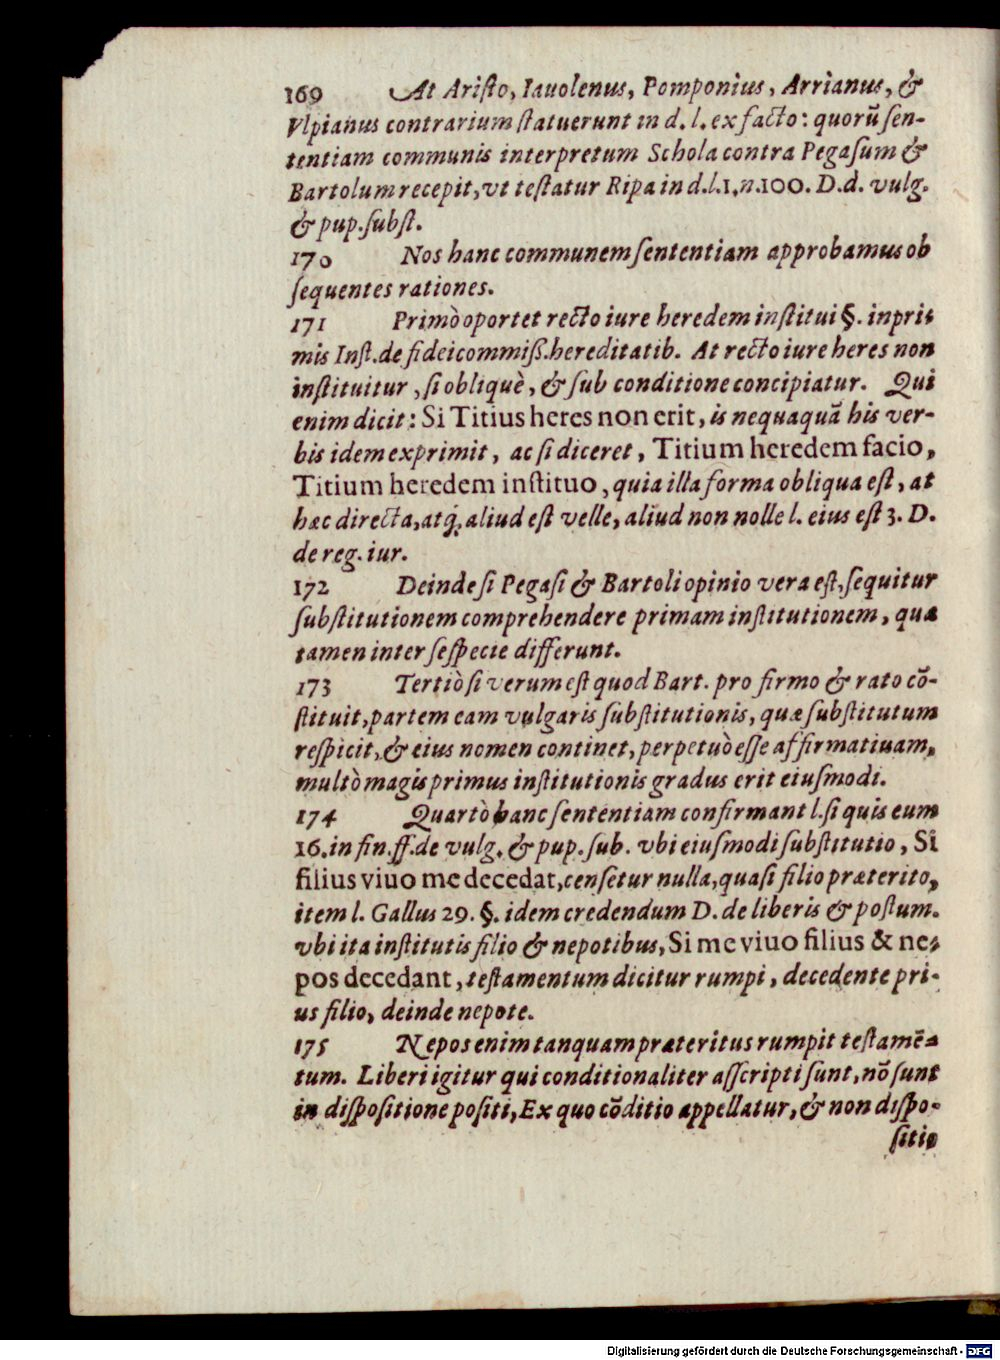 169 At Aristo, Iauolenus, Pomponius, Arrianus, &
Vlpianus contrarium statuerunt in d. l. ex facto: quorũ sen-
tentiam communis interpretum Schola contra Pegasum &
Bartolum recepit, vt testatur Ripa in d.l.1. n.100. D.d. vulg.
& pup. subst.
170 Nos hanc communem sententiam approbamus ob
sequentes rationes.
171 Primò oportet recto iure heredem institui §. inpri-
mis Inst. de fideicommiß. hereditatib. At recto iure heres non
instituitur, si obliquè, & sub conditione concipiatur. Qui
enim dicit: Si Titius heres non erit, is nequaquã his ver-
bis idem exprimit, ac si diceret, Titium heredem facio,
Titium heredem instituo, quia illa forma obliqua est, at
hæc directa, atq́, aliud est velle, aliud non nolle l. eius est 3. D.
de reg. iur.
172 Deinde si Pegasi & Bartoli opinio vera est, sequitur
substitutionem comprehendere primam institutionem, quæ
tamen inter se specie differunt.
173 Tertiò si verum est quod Bart. pro firmo & rato cõ-
stituit, partem eam vulgaris substitutionis, quæ substitutum
respicit, & eius nomen continet, perpetuò esse affirmatiuam,
multò magis primus institutionis gradus erit eiusmodi.
174 Quartò hanc sententiam confirmant l. si quis eum
16. in fin. ff. de vulg. & pup. sub. vbi eiusmodi substitutio, Si
filius viuo me decedat, censetur nulla, quasi filio præterito,
item l. Gallus 29. §. idem credendum D. de liberis & postum.
vbi ita institutis filio & nepotibus, Si me viuo filius & ne-
pos decedant, testamentum dicitur rumpi, decedente pri-
us filio, deinde nepote.
175 Nepos enim tanquam præteritus rumpit testamẽ-
tum. Liberi igitur qui conditionaliter asscripti sunt, nõ sunt
in dispositione positi, Ex quo cõditio appellatur, & non dispo-
sitio
Digitalisierung gefördert durch die Deutsche Forschungsgemeinschaft - DFG